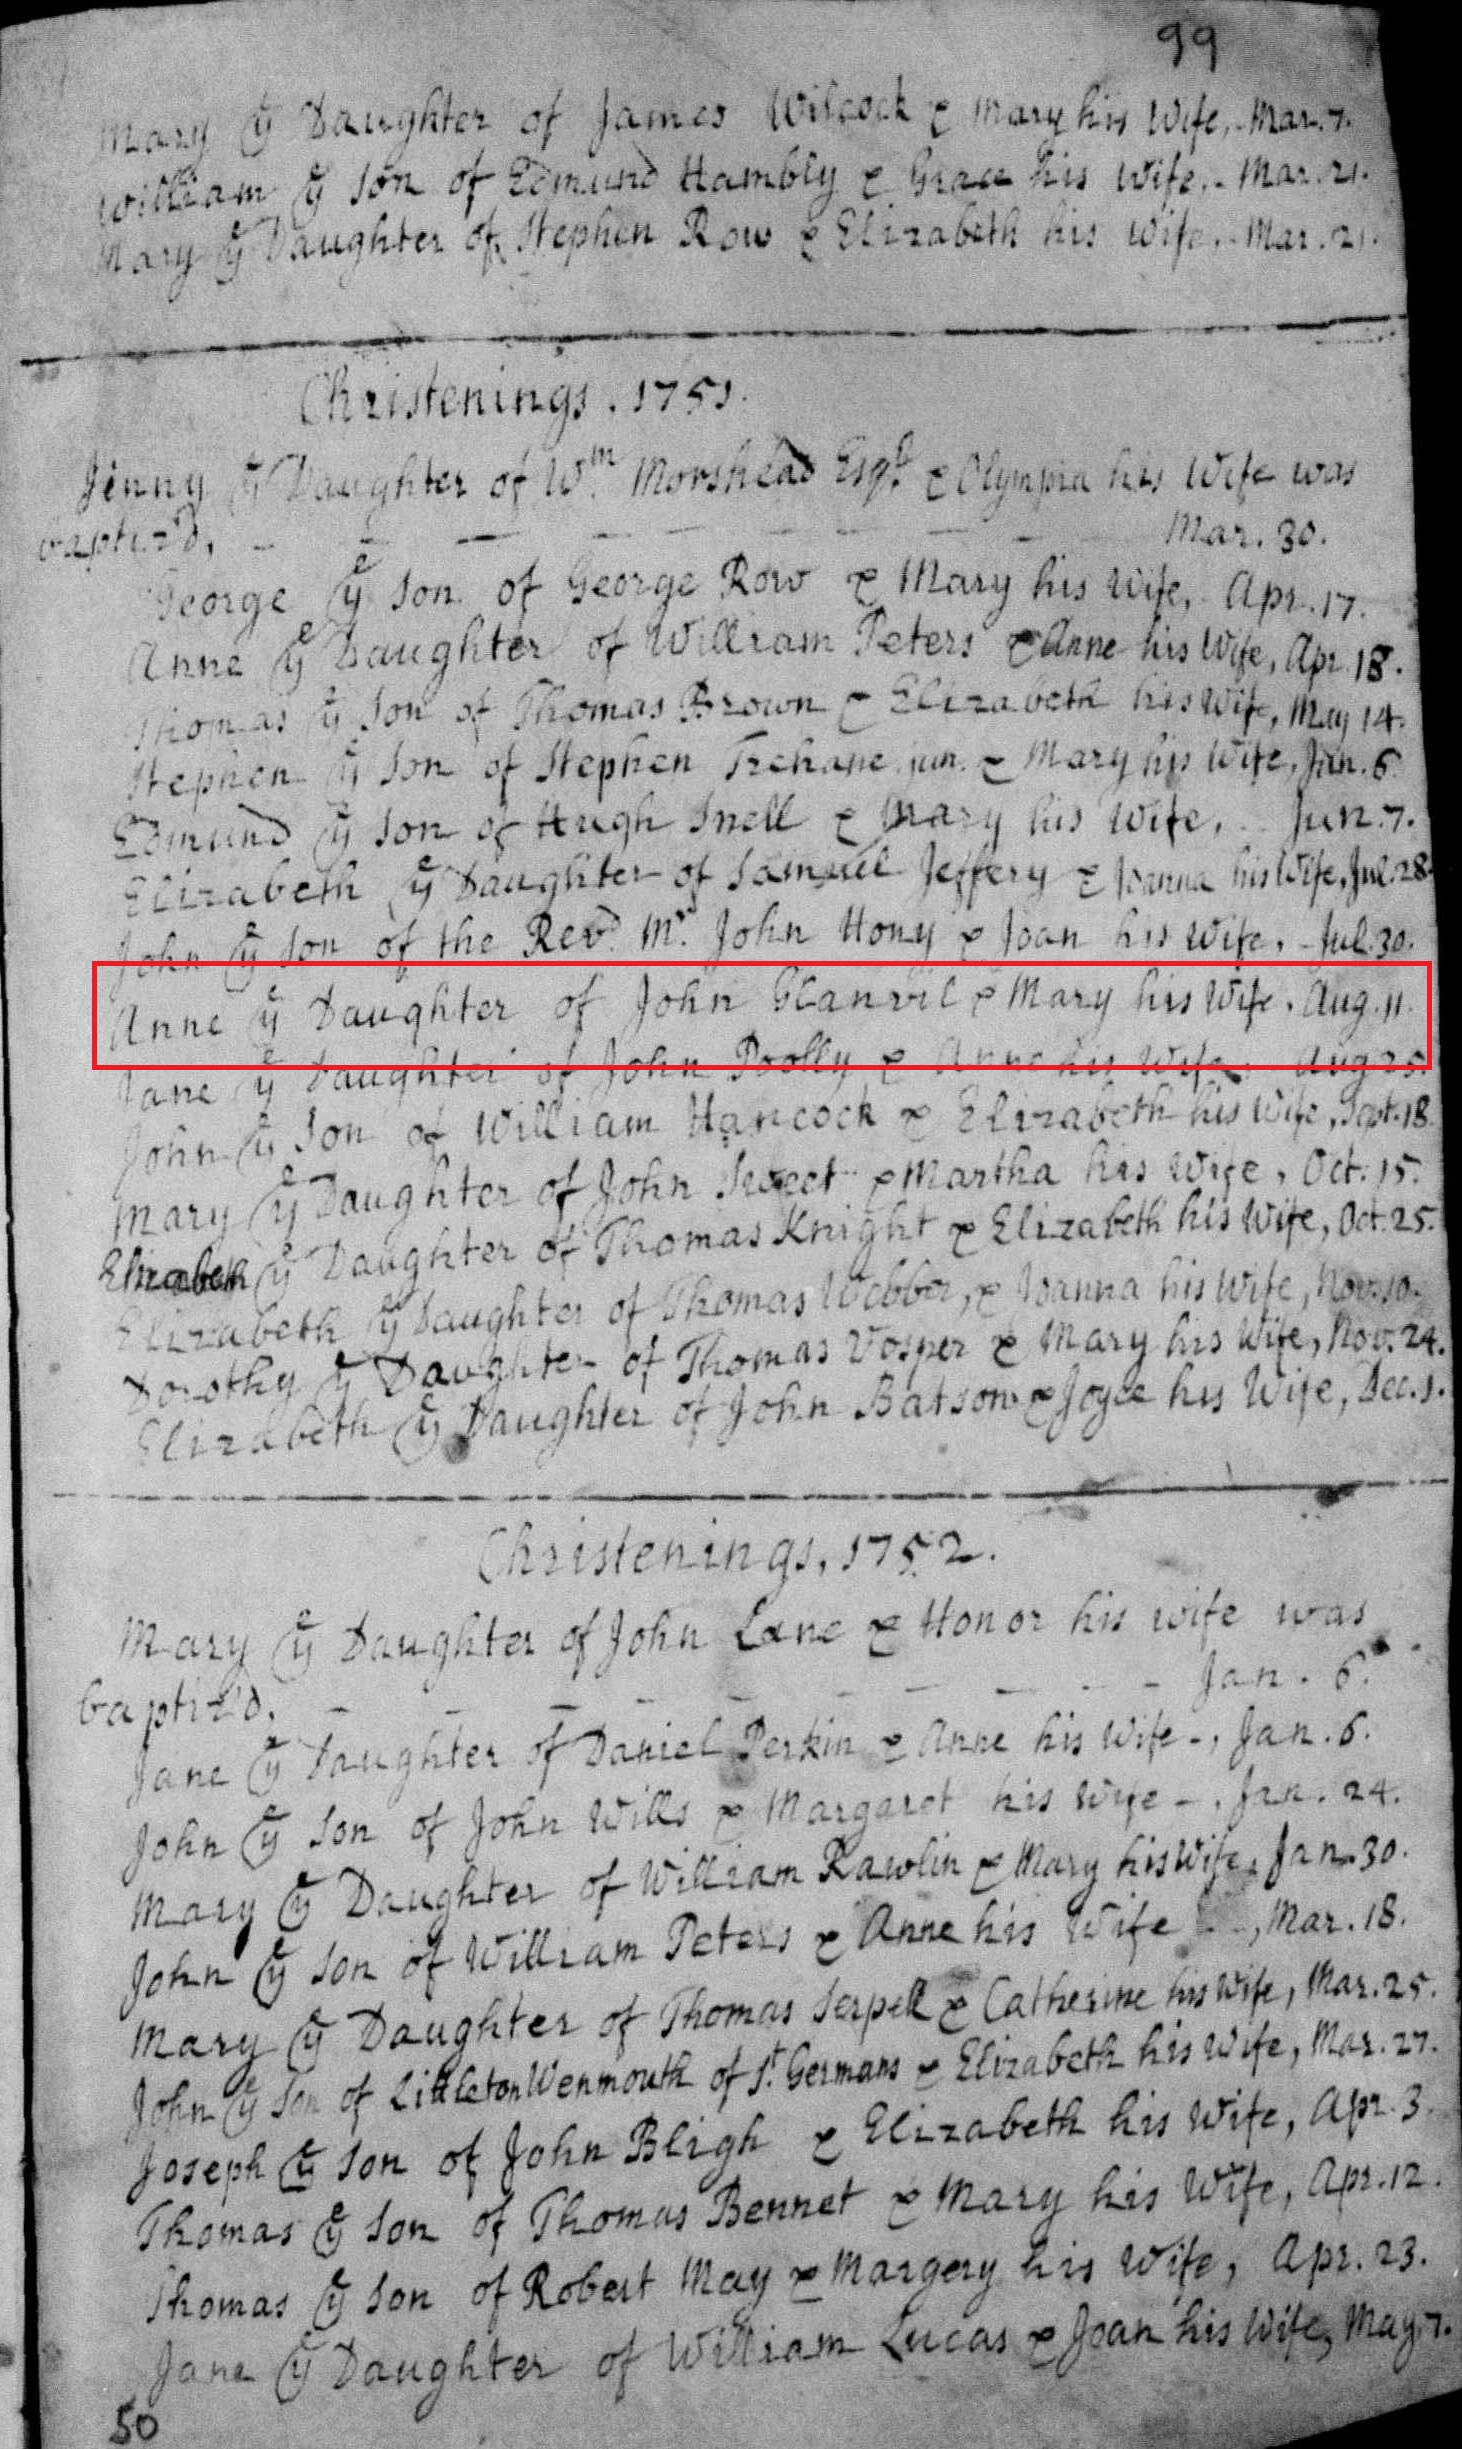 99
Mary ye Daughter of James Wilcock & Mary his Wife, Mar. 7.
William ye Son of Edmund Hambly & Grace his Wife, Mar. 21.
Mary ye Daughter of Stephen Row & Elizabeth his Wife, Mar. 21.
Christenings, 1751.
Jenny ye Daughter of Wm. Morshead Esqr. & Olympia his Wife was
baptiz'd, - - - - - - - Mar. 30.
George ye Son of George Row & Mary his Wife, Apr. 17.
Anne ye Daughter of William Peters & Anne his Wife, Apr. 18.
Thomas ye Son of Thomas Brown & Elizabeth his Wife, May 14.
Stephen ye Son of Stephen Trehane jun. & Mary his Wife, Jun. 6.
Edmund ye Son of Hugh Snell & Mary his Wife, Jun. 7.
Elizabeth ye Daughter of Samuel Jeffery & Joanna his Wife, Jul. 28.
John ye Son of the Revd. Mr. John Hony & Joan his Wife, Jul. 30.
Anne ye Daughter of John Glanvil & Mary his Wife, Aug. 11.
Jane ye Daughter of John Poolly & Anne his Wife, Aug 25.
John ye Son of William Hancock & Elizabeth his Wife, Sept. 18.
Mary ye Daughter of John Sweet & Martha his Wife, Oct. 15.
Elizabeth ye Daughter of Thomas Knight & Elizabeth his Wife, Oct. 25.
Elizabeth ye Daughter of Thomas Webber, & Joanna his Wife, Nov. 10.
Dorothy ye Daughter of Thomas Vosper & Mary his Wife, Nov. 24.
Elizabeth ye Daughter of John Batson & Joyce his Wife, Dec. 1.
Christenings, 1752.
Mary ye Daughter of John Lane & Honor his wife was
baptiz'd, - - - - - - - Jan. 6.
Jane ye Daughter of Daniel Perkin & Anne his Wife -, Jan. 6.
John ye Son of John Wills & Margaret his Wife -, Jan. 24.
Mary ye Daughter of William Rawlin & Mary his Wife, Jan. 30.
John ye Son of William Peters & Anne his Wife - -, Mar. 18.
Mary ye Daughter of Thomas Serpell & Catherine his Wife, Mar. 25.
John ye Son of Littleton Wenmouth of St. Germans & Elizabeth his Wife, Mar. 27.
Joseph ye Son of John Bligh & Elizabeth his Wife, Apr. 3.
Thomas ye Son of Thomas Bennet & Mary his Wife, Apr. 12.
Thomas ye Son of Robert May & Margery his Wife, Apr. 23.
Jane ye Daughter of William Lucas & Joan his Wife, May 7.
50